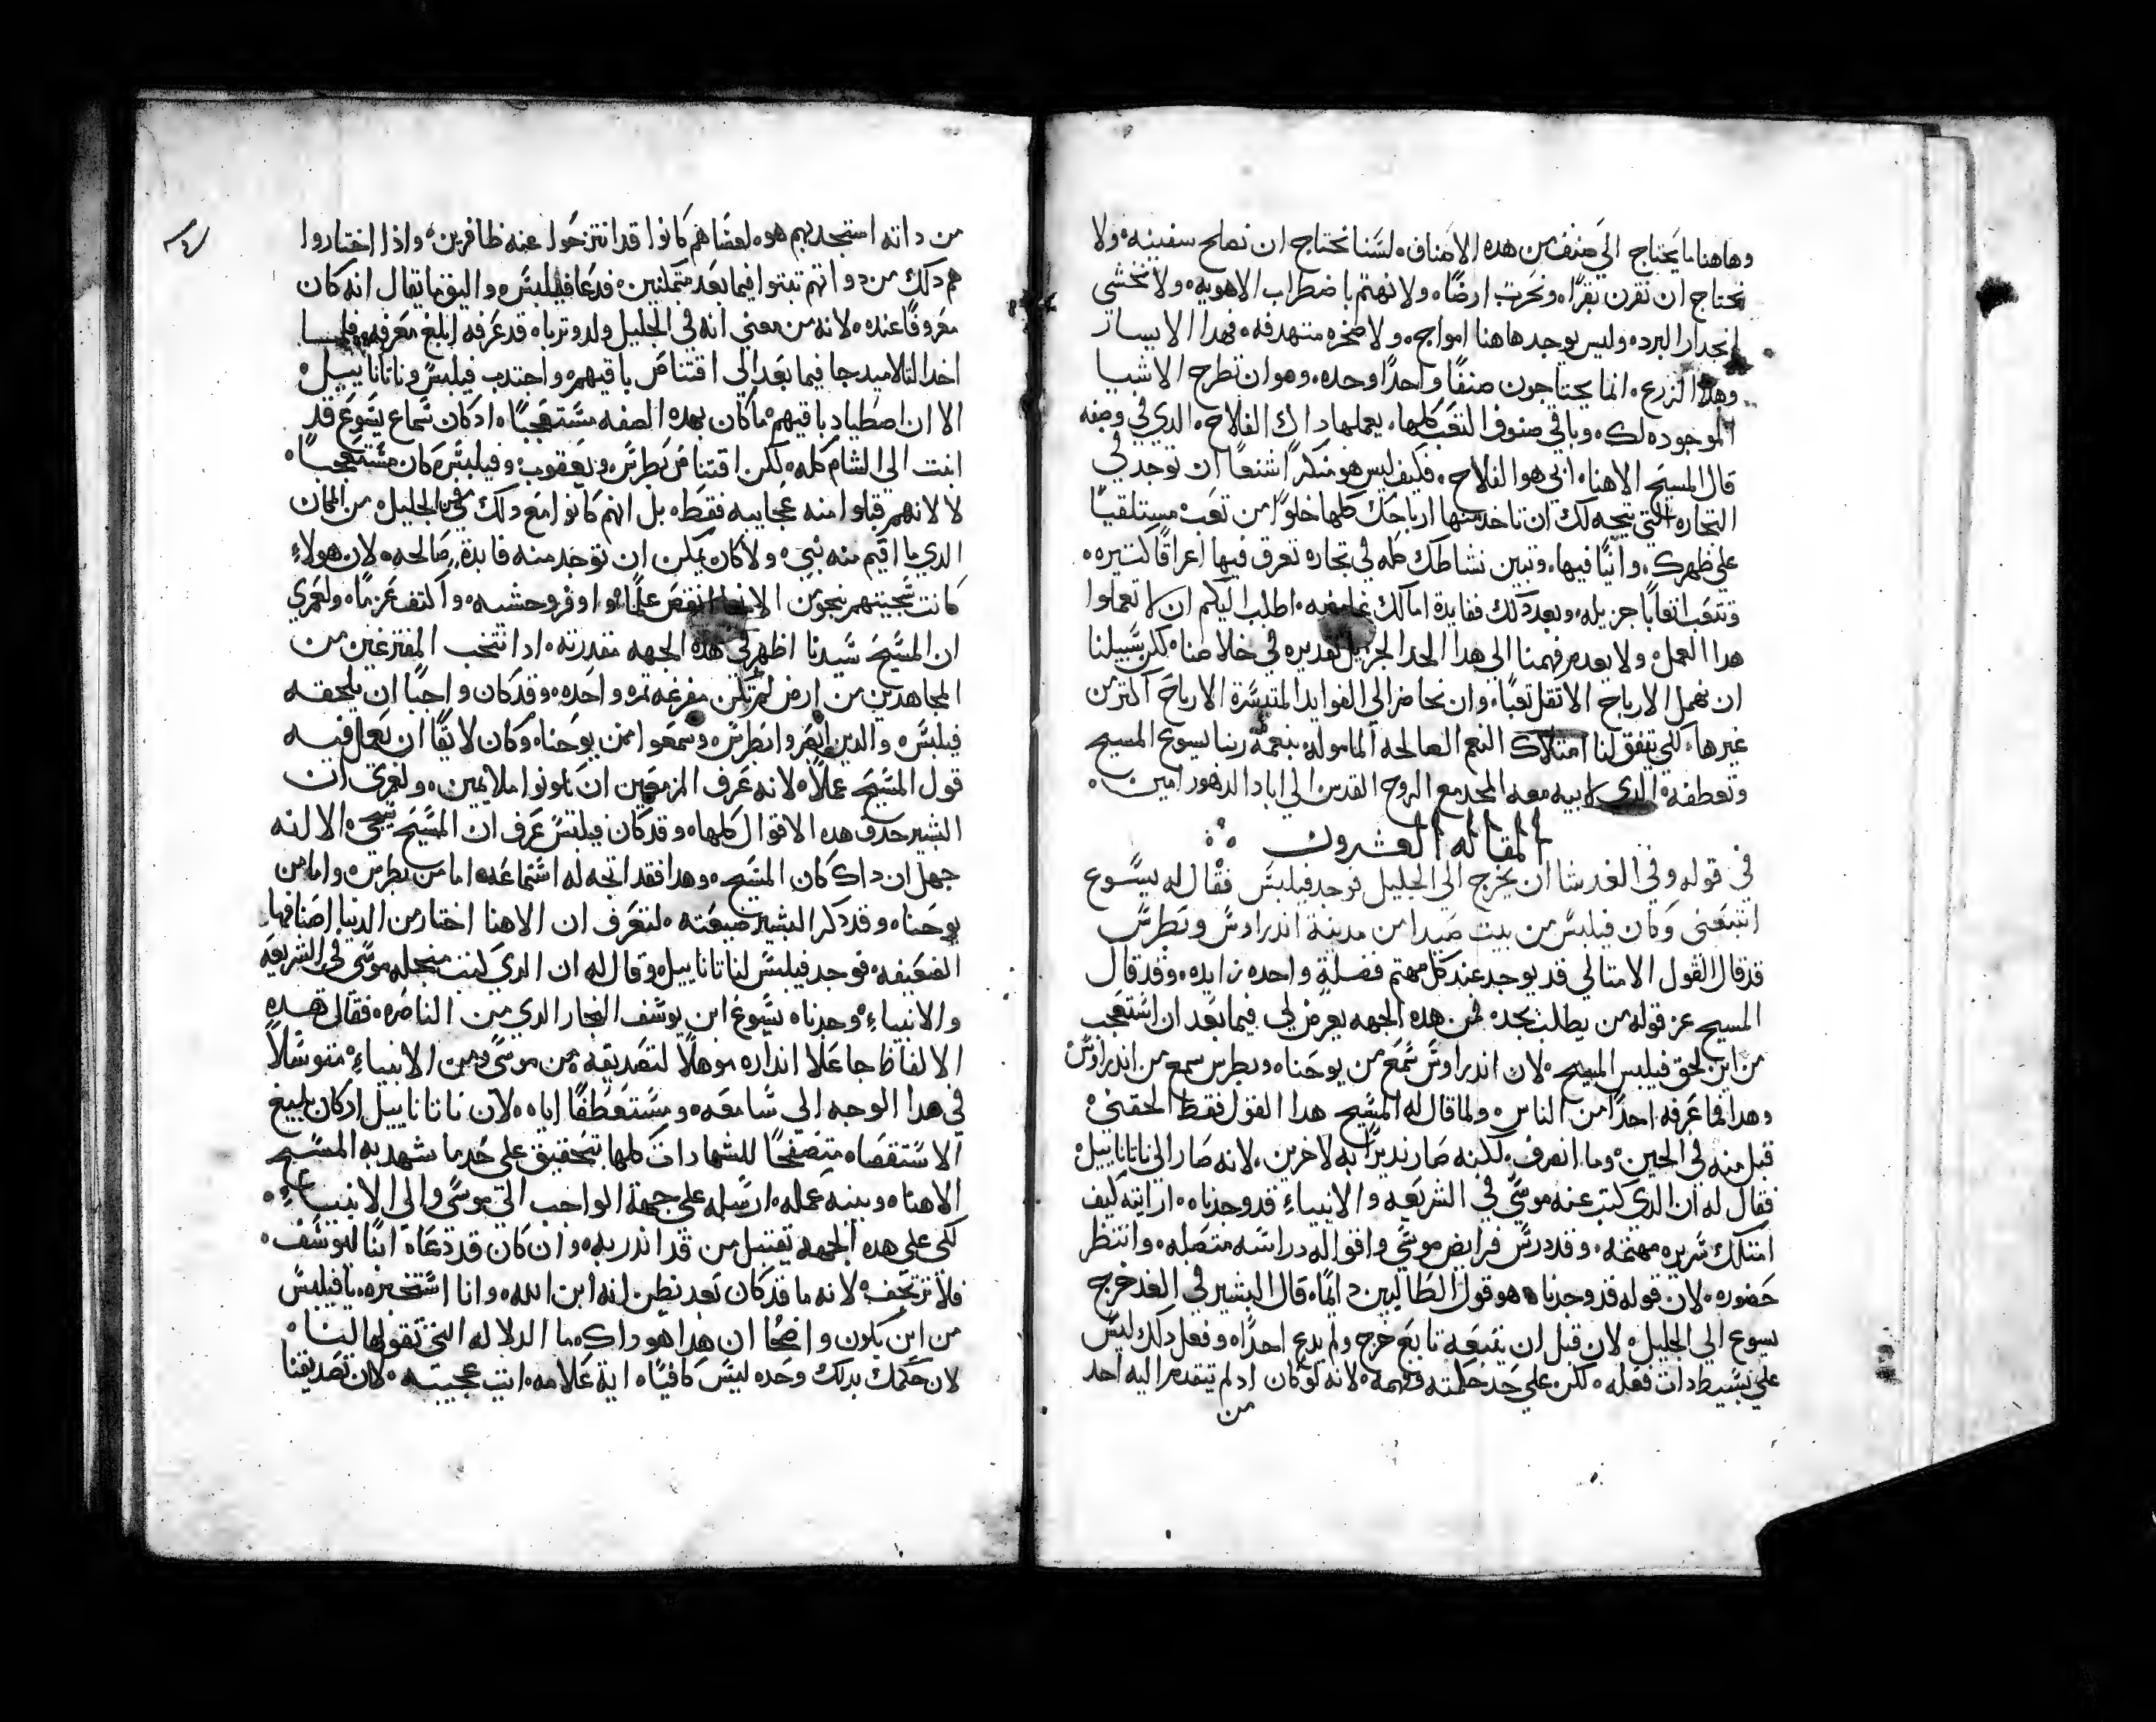 وهاهنا ما يحتاج الي صنف من هده الاصناف، لسنا نحتاج ان نصلح سفينه، ولا
نحتاج ان نقرن بقرًا، ونحرت ارضًا، ولا نهتم باضطراب الاهويه، ولا نخشي
انحدار البرد، وليس يوجد هاهنا امواج، ولا صخره متهدفه، فهدا الابسار
وهدا الزرع، انما يحتاجون صنفًا واحدًا وحده، وهو ان نطرح الاشيا
الموجوده لك، وباقي صنوف التعب كلها، يعملها داك الفلاح، الدي في وصفه
قال المسيح الاهنا، ابي هو الفلاح، فكيف ليس هو منكرًا شنعًا ان توجد في
التجاره التي يتجه لك ان تاخد منها ارباحك كلها خلوًا من تعب مستلقيًا
علي ظهرك، وانيًا فيها، وتبين نشاطك كله في تجاره تعرق فيها اعراقًا كتيره،
وتتعب اتعابًا جزيله، وبعد دلك ففايدة امالك غامضه، اطلب اليكم ان لا تعملوا
هدا العمل، ولا يعدم فهمنا الي هدا الحد الجزيل تقديره في خلاصنا، لكن سبيلنا
ان نهمل الارباح الاتقل تعبًا، وان نحاضر الي الفوايد المتيسرة الارباح اكتر من
غيرها، لكي يتفق لنا امتلاك النعم الصالحه الماموله بنعمة ربنا يسوع المسيح
وتعطفه الدي لابيه معه المجد مع الروح القدس الي اباد الدهور امين،
المقاله العشرون
في قوله وفي الغد شا ان يخرج الي الجليل فوجد فيلبس فقال له يسوع
اتبعني وكان فيلبس من بيت صيدا من مدينة اندراوس وبطرس
قد قال القول الامتالي قد يوجد عند كل مهتم فضلة واحده زايده، وقد قال
المسيح عز قوله من يطلب يجد، فمن هده الجهه يعرض لي فيما بعد ان استعجب
من اين لحق فيلبس المسيح، لان اندراوس سمع من يوحنا، وبطرس سمع من اندراوس
وهدا فما عرفه احدًا من الناس، ولما قال له المسيح هدا القول فقط الحقني،
قبل منه في الحين، وما انصرف، لكنه صار نديرًا به لاخرين، لانه صار الي ناتاناييل،
فقال له ان الدي كتب عنه موسي في الشريعه والانبياء قد وجدناه، ارايته كيف
امتلك سريره مهتمه، وقد درس فرايض موسي واقواله دراسه متصله، وانتظر
حضوره، لان قوله قد وجدناه هو قول الطالبين دايمًا، قال البشير في الغد خرج
يسوع الي الجليل، لان قبل ان يتبعه تابع خرج ولم يدع احدًا، وفعل دلك ليس
علي بسيط دات فعله، لكن علي حد حكمته وفهمه، لانه لو كان اد لم يتقدم اليه احد
من
من داته استجدبهم هو، لعساهم كانوا قد انتزحوا عنه ظافرين، وادا اختاروا
هم دلك من دواتهم تبتوا فيما بعد متمكنين، فدعا فيلبس، واليق ما يقال انه كان
معروفًا عنده، لانه من معني انه في الجليل ولد وتربا، قد عرفه ابلغ معرفه، فلما
اخد التلاميد جا فيما بعد الي اقتناص باقيهم، واجتدب فيلبس وناتاناييل،
الا ان اصطياد باقيهم ما كان بهده الصفه مستعجبًا، اد كان سماع يسوع قد
انبت الي الشام كله، لكن اقتناص بطرس، ويعقوب، وفيلبس كان مستعجبًا،
لا لانهم قبلوا منه عجايبه فقط، بل انهم كانوا مع دلك من الجليل، من المكان
الدي ما اقيم منه نبي، ولا كان يمكن ان توجد منه فايدة صالحه، لان هولاء
كانت سجيتهم نحو من انقص علمًا، واوفر وحشيه، واكتف عزمًا، ولعمري
ان المسيح سيدنا اظهر في هده الجهه مقدرته، اد انتخب المفترعين من
المجاهدين من ارض لم تكن مفرعه تمره واحده، وقد كان واجبًا ان يلحقه
فيلبس، والدين ابصروا بطرس، وسمعوا من يوحنا، وكان لايقًا ان يعمل فيه
قول المسيح عملًا، لانه عرف المزمعين ان يكونوا ملايمين، ولعمري ان
البشير حدف هده الاقوال كلها، وقد كان فيلبس عرف ان المسيح يجيء، الا انه
جهل ان داك كان المسيح، وهدا فقد اتجه له استماعه، اما من بطرس، واما من
يوحنا، وقد دكر البشير ضيعته، لتعرف ان الاهنا اختار من الدنيا اصنافها
الضعيفه، فوجد فيلبس لناتاناييل، وقال له ان الدي كتب من اجله موسي في الشريعه
والانبياء، وجدناه يسوع ابن يوسف النجار الدي من الناصره، فقال هده
الالفاظ جاعلًا انداره موهلًا لتصديقه من موسي ومن الانبياء، متوسلًا
في هدا الوجه الي سامعه، ومستعطفًا اياه، لان ناتاناييل اد كان بليغ
الاستقصاء متصفحًا للشهادات كلها بتحقيق علي حد ما شهد به المسيح
الاهنا، وبينه عمله، ارسله علي جهة الواجب الي موسي والي الانبياء،
لكي علي هده الجهه يقتبل من قد اندر به، وان كان قد دعاه ابنًا ليوسف،
فلا ترتجف، لانه ما قد كان بعد نظن انه ابن الله، وانا استخبره، يا فيلبس
من اين يكون واضحًا ان هدا هو داك، ما الدلاله التي تقولها لنا،
لان حكمك بدلك وحده ليس كافيًا، اية علامه، ايت عجيبه، لان تصديقنا